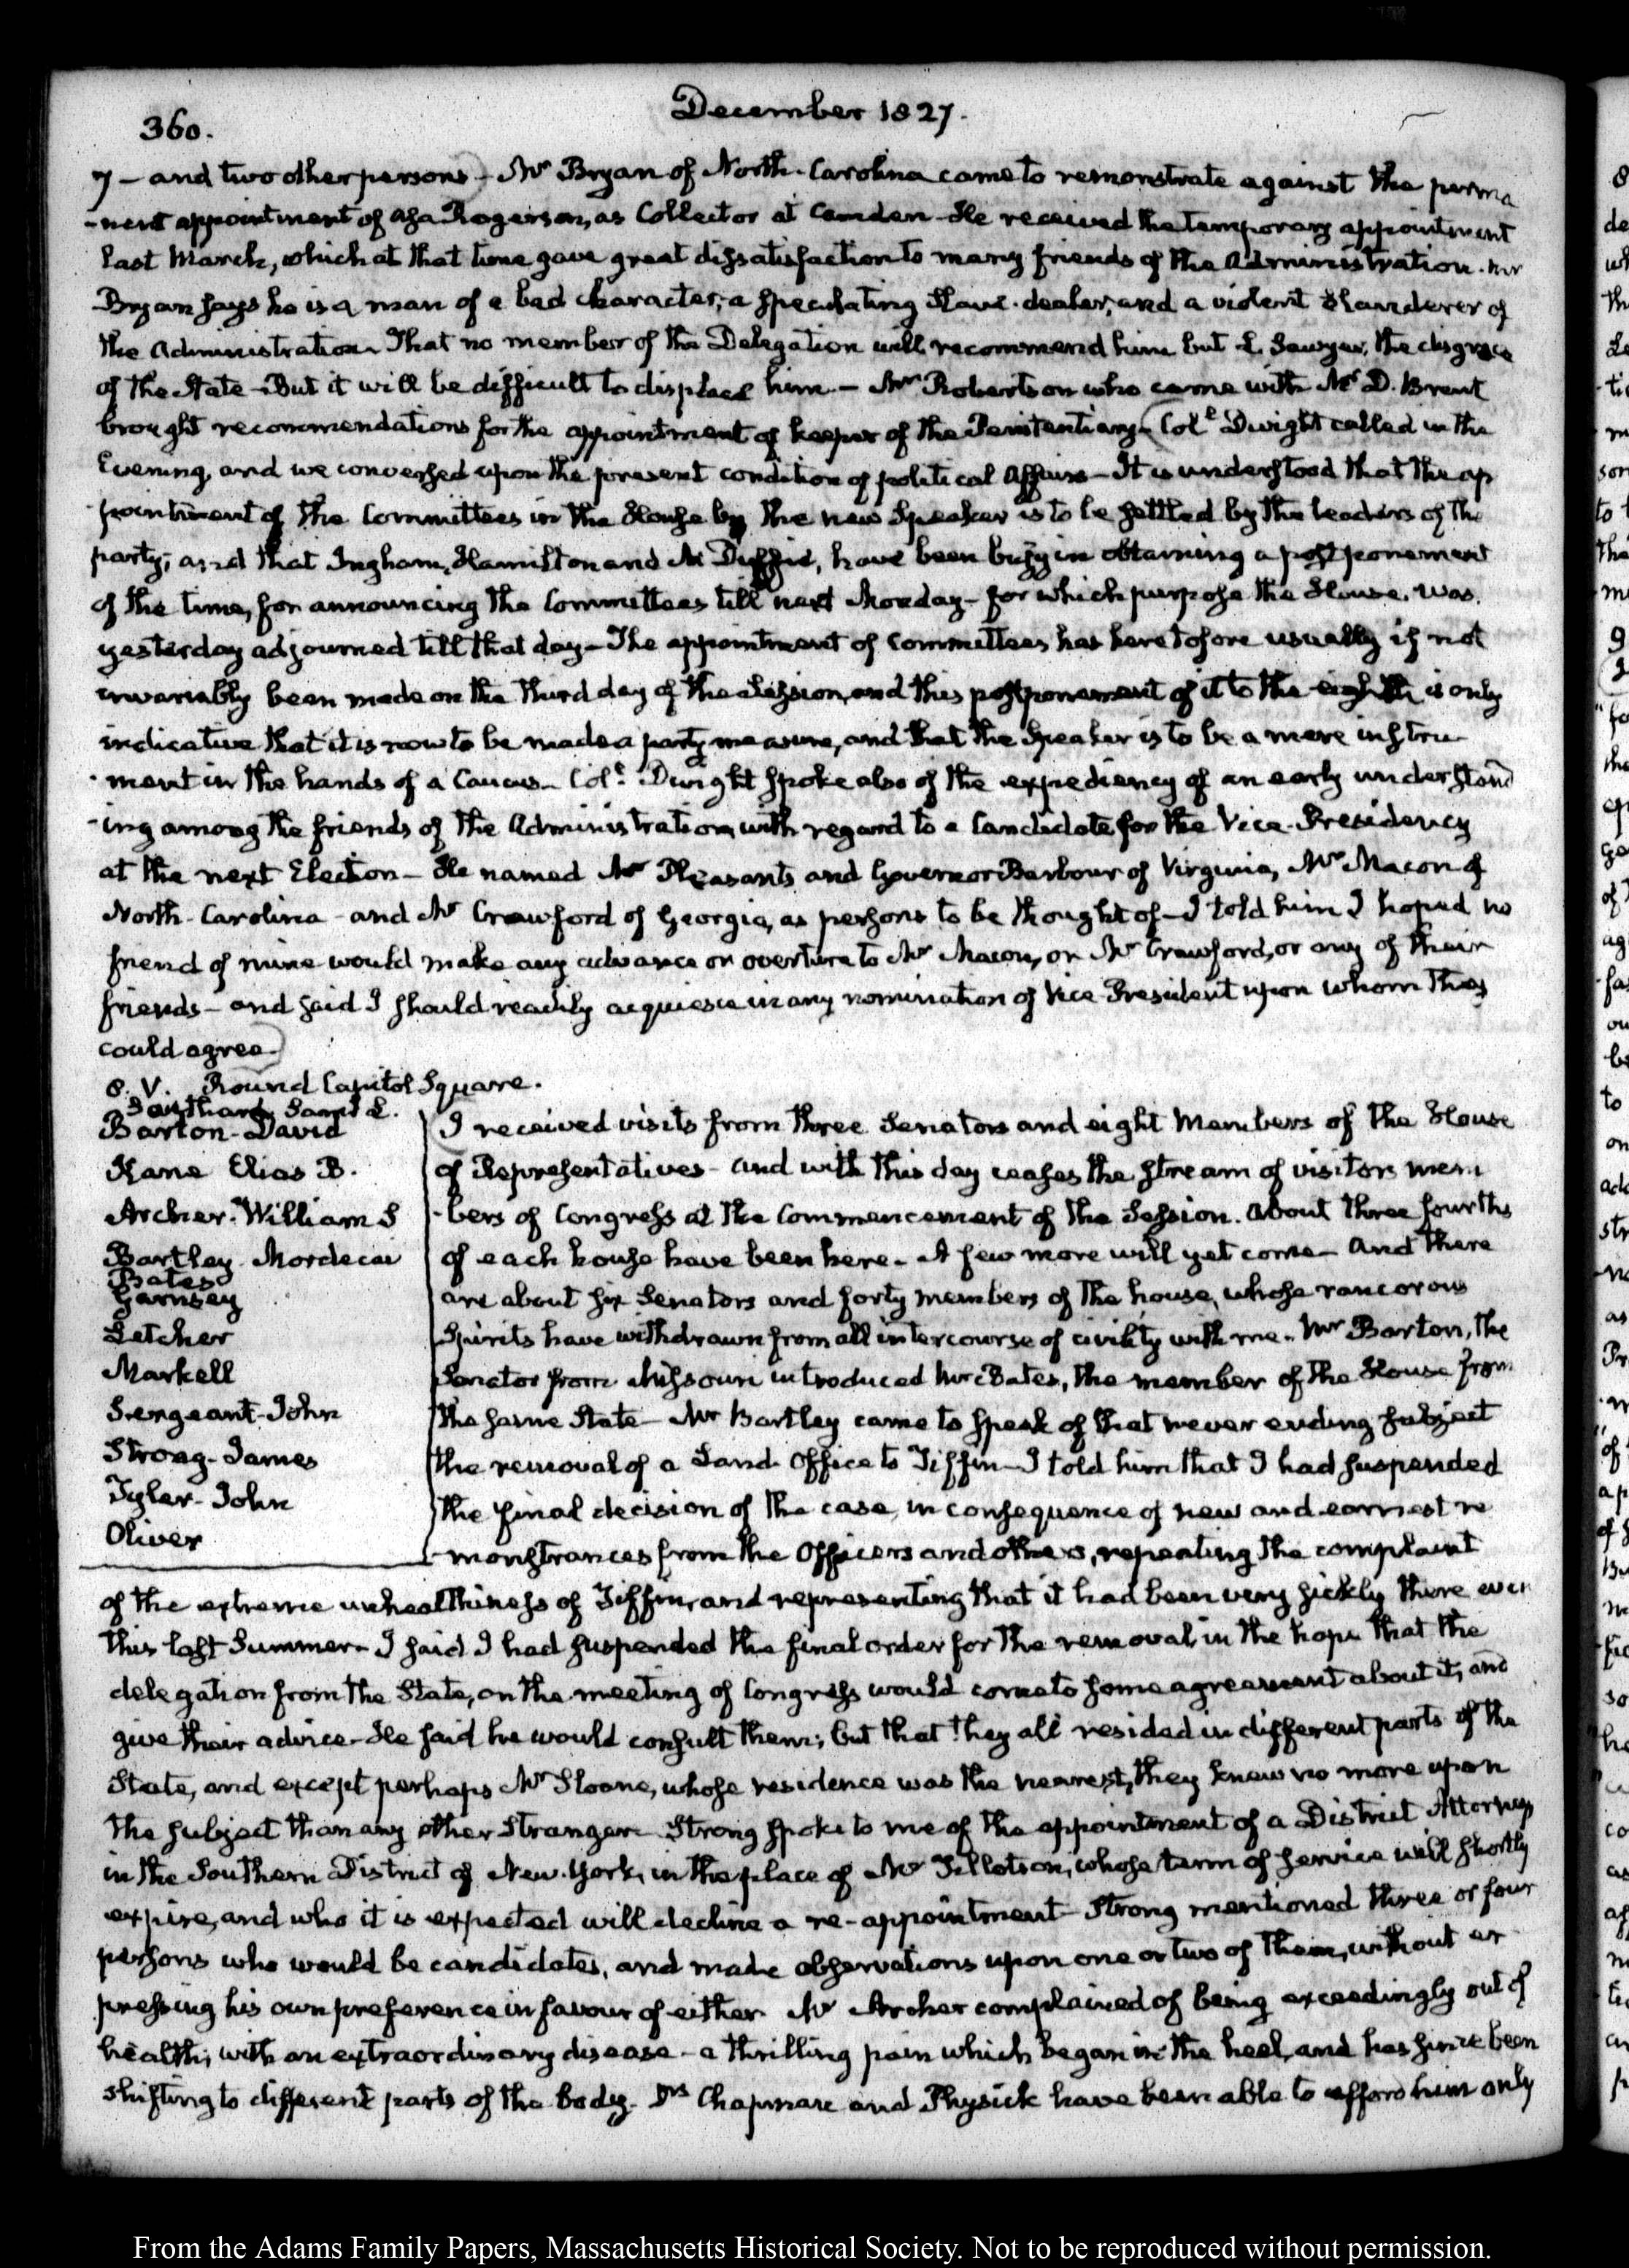 360.
December 1827.
7 — and two other persons — Mr. Bryan of North-Carolina came to remonstrate against the perma
-nent appointment of Asa Rogerson, as Collector at Camden — He received the temporary appointment
last March, which at that time gave great dissatisfaction to many friends of the Administration. Mr
Bryan says he is a man of a bad character; a speculating Slave-dealer, and a violent slanderer of
the Administration. That no member of the Delegation will recommend him but L. Sawyer, the disgrace
of the State — But it will be difficult to displace him. — Mr Robertson who came with Mr D. Brent
brought recommendations for the appointment of keeper of the Penitentiary — Coll. Dwight called in the
Evening, and we conversed upon the present condition of political affairs — It is understood that the ap
-pointment of the Committees in the House by the new Speaker is to be settled by the leaders of the
party; and that Ingham, Hamilton and Mc Duffie, have been busy in obtaining a postponement
of the time, for announcing the Committees till next Monday — for which purpose the House was
yesterday adjourned till that day — The appointment of Committees has heretofore usually if not
invariably been made on the third day of the Session, and this postponement of it to the eighth is only
indicative that it is now to be made a party measure, and that the Speaker is to be a mere instru
-ment in the hands of a Caucus — Coll. Dwight spoke also of the expediency of an early understand
-ing among the friends of the Administration, with regard to a Candidate for the Vice-Presidency
at the next Election — He named Mr Pleasants and Governor Barbour of Virginia, Mr Macon of
North-Carolina — and Mr Crawford of Georgia, as persons to be thought of — I told him I hoped no
friend of mine would make any advance or overture to Mr Macon, or Mr Crawford, or any of their
friends — and said I should readily acquiesce in any nomination of Vice-President upon whom they
could agree.
8. V. Round Capitol Square.
Southard Saml L.
Barton-David
Kane Elias B.
Archer. William S
Bartley Mordecai
Bates
Garnsey
Letcher
Markell
Sergeant-John
Strong-James
Tyler-John
Oliver
I received visits from three Senators and eight Members of the House
of Representatives — and with this day ceases the stream of visitors mem
-bers of Congress at the Commencement of the Session. About three fourths
of each house have been here — A few more will yet come — And there
are about six Senators and forty members of the house, whose rancorous
Spirits have withdrawn from all intercourse of civility with me. Mr Barton, the
Senator from Missouri introduced Mr Bates, the member of the House from
the same State — Mr Bartley came to speak of that never ending subject
the removal of a Land Office to Tiffin — I told him that I had suspended
the final decision of the case, in consequence of new and earnest re
-monstrances from the Officers and others, repeating the complaint
of the extreme unhealthiness of Tiffin, and representing that it had been very sickly there even
this last Summer — I said I had suspended the final order for the removal, in the hope that the
delegation from the State, on the meeting of Congress would come to some agreement about it, and
give their advice — He said he would consult them; but that they all resided in different parts of the
State, and except perhaps Mr Sloane, whose residence was the nearest, they knew no more upon
the subject than any other Stranger — Strong spoke to me of the appointment of a District Attorney
in the Southern District of New-York, in the place of Mr Tillotson, whose term of service will shortly
expire, and who it is expected will decline a re-appointment — Strong mentioned three or four
persons who would be candidates, and made observations upon one or two of them, without ex
-pressing his own preference in favour of either. Mr Archer complained of being exceedingly out of
health; with an extraordinary disease — a thrilling pain which began in the heel, and has since been
shifting to different parts of the body. Drs Chapman and Physick have been able to afford him only
From the Adams Family Papers, Massachusetts Historical Society. Not to be reproduced without permission.